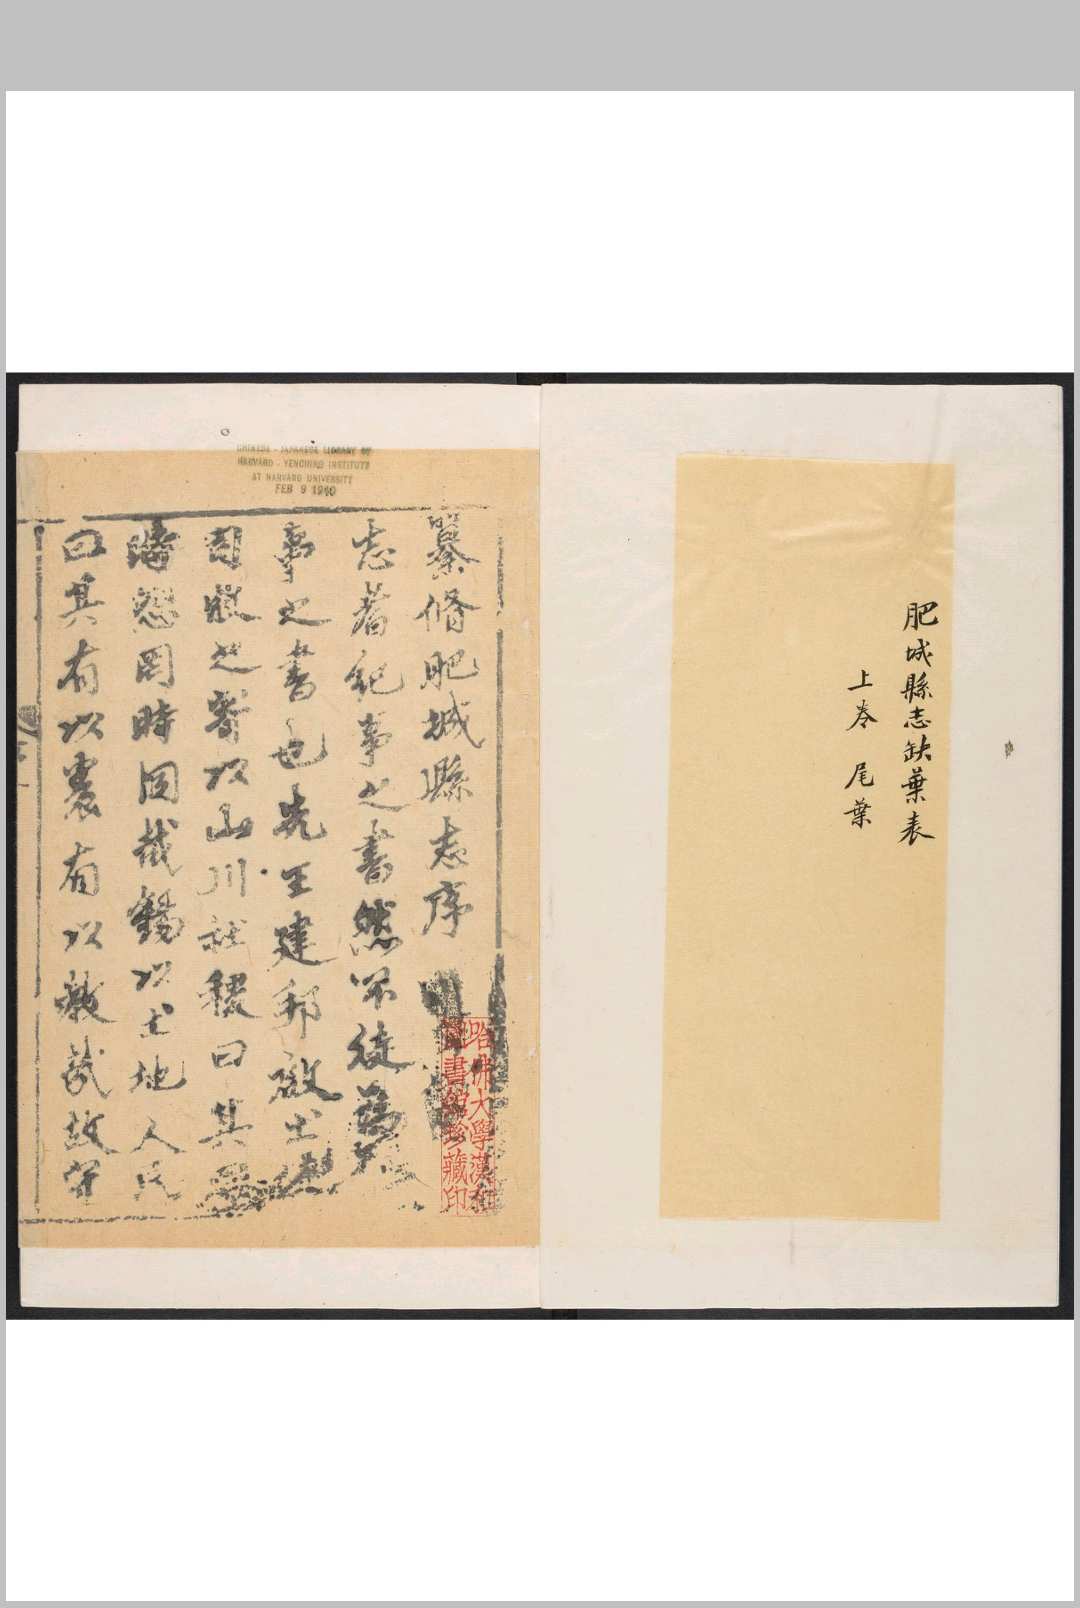 肥城縣志缺葉表
上卷 尾葉
CHINESE - JAPANESE LIBRARY OF
HARVARD - YENCHING INSTITUTE
AT HARVARD UNIVERSITY
FEB 9 1940
纂脩肥城縣志序
志者紀事之書然不徒為紀
事之書也先王建邦啟土
司牧之寄以山川社稷曰其
疇怨罔時恫哉錫以土地人民
曰其有以裏有以教哉故守
哈佛大學漢和
圖書館珍藏印